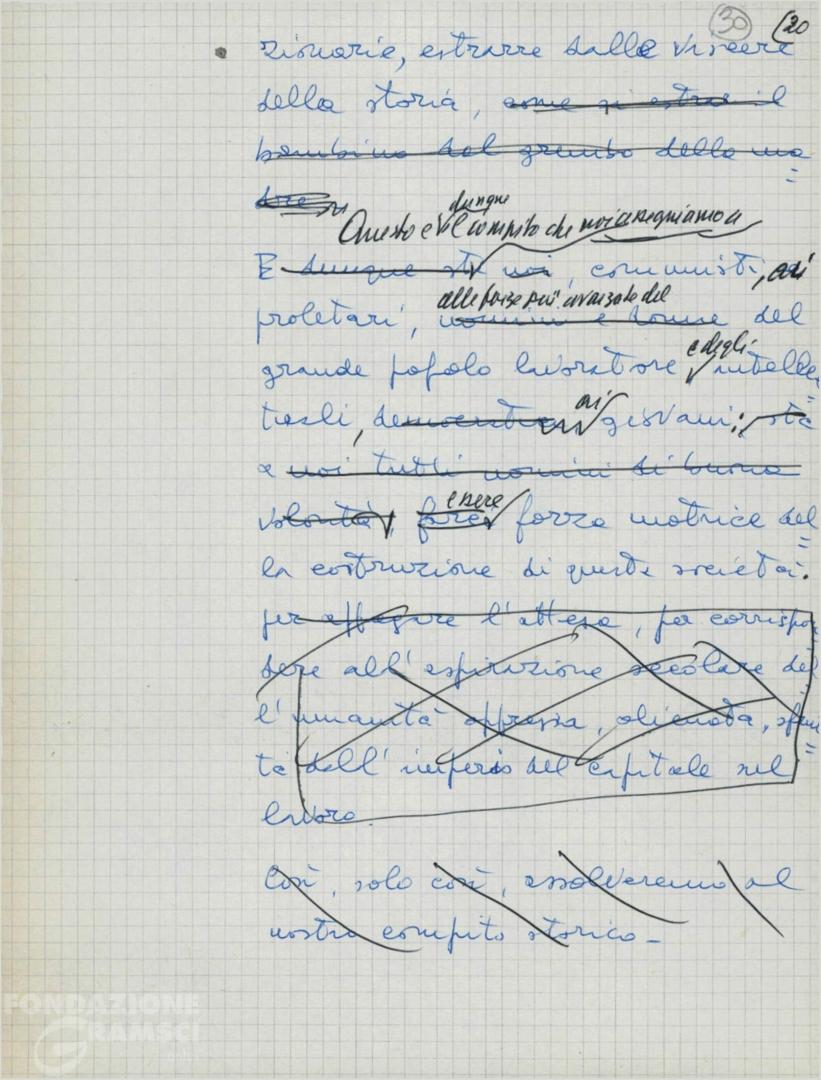 30 20
zionaria, estrarre dalle viscere
della storia, come si estrae il
bambino dal grembo della ma=
dre.
dunque
Questo è il compito che noi assegniamo a
E dunque sta noi, comunisti, ai
alle forze più avanzate del
proletari, uomini e donne del
e degli
grande popolo lavoratore intellet=
ai
tuali, giovani: sta
a noi tutti uomini di buona
essere
volontà, fare forza motrice del=
la costruzione di questa società.
per appagare l'attesa, per corrispon
dere all'aspirazione secolare del
l'umanità oppressa, alienata, sfrut=
ta dall'imperio del capitale sul
lavoro.
Così, solo così, assolveremo al
nostro compito storico –
FONDAZIONE
GRAMSCI